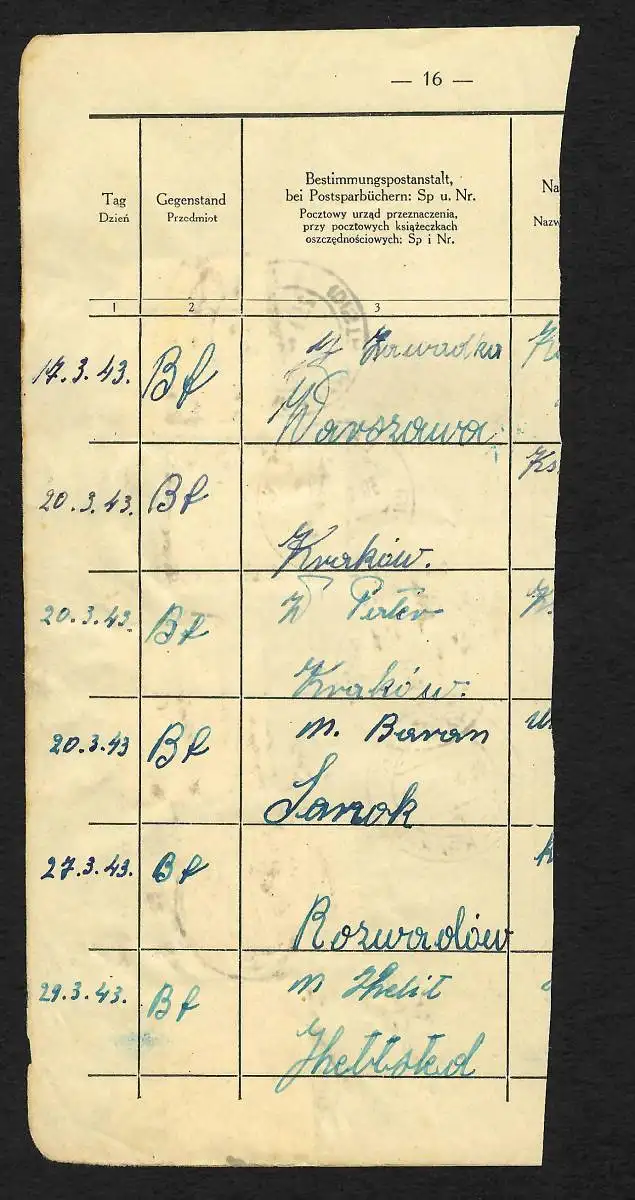 — 16 —
Tag
Dzień
Gegenstand
Przedmiot
Bestimmungspostanstalt,
bei Postsparbüchern: Sp u. Nr.
Pocztowy urząd przeznaczenia,
przy pocztowych książeczkach
oszczędnościowych: Sp i Nr.
Na
Nazw
1
2
3
17.3.43.
Bf
Zawadka
Warszawa
20.3.43.
Bf
Kraków.
20.3.43.
Bf
Kraków.
20.3.43
Bf
m. Baran
Sanok
27.3.43.
Bf
Rozwadów
29.3.43.
Bf
m